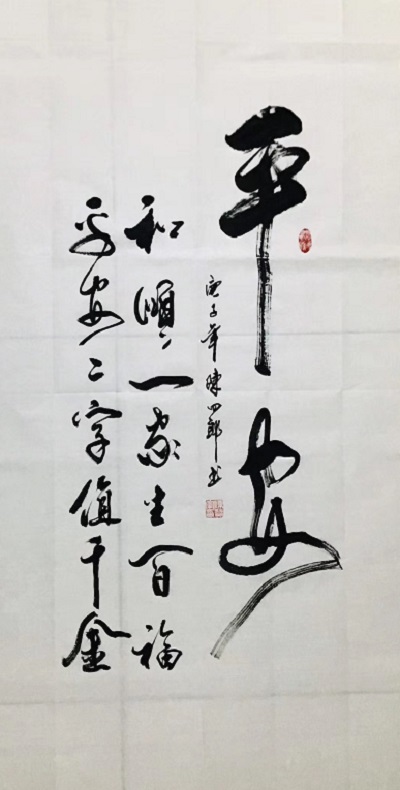 平安
庚子年陈四郎书
和顺一家生百福
平安二字值千金